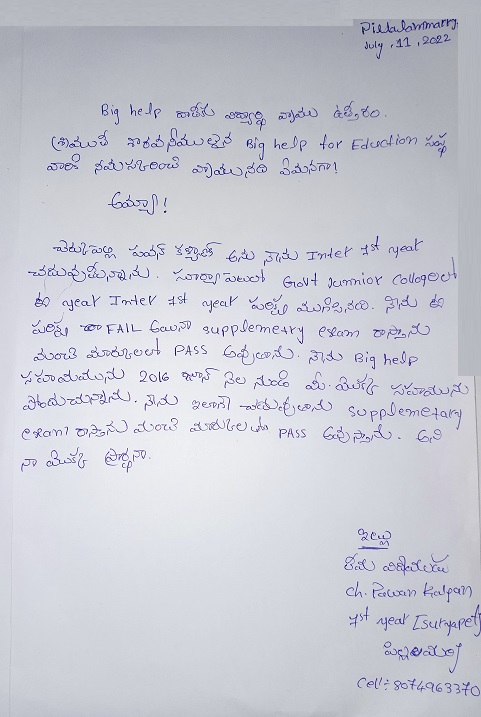 Pillalammarry,
July, 11, 2022
Big help విద్యార్థి వ్రాయు ఉత్తరం.
శ్రీమతి గౌరవనీయులైన Big help for Eduction సంస్థ
వారికి నమస్కరించి వ్రాయునది ఏమనగా!
అమ్మా!
చెరుకుపల్లి పవన్ కళ్యాణ్ అను నేను Inter 1st year
చదువుతున్నాను. సూర్యాపేటలో Govt Junnior Collogeలో
ఈ year Inter 1st year పరీక్ష ముగిసినది. నేను ఈ
పరీక్ష FAIL అయినా supplemetary exam రాస్తాను
మంచి మార్కులలో PASS అవుతాను. నేను Big help
సహాయమును 2016 జూన్ నెల నుండి మీ యొక్క సహాయును
పొందుచున్నాను. నేను ఇలాగే చదువుతాను supplemetary
exam రాస్తాను మంచి మార్కులలో PASS అవుస్తాను. అని
నా యొక్క ప్రార్థన.
ఇట్లు
మీ విధేయుడు
Ch. Pawan Kalyan
1st year [suryapet]
పిల్లలమర్రి
Cell:- 8074963370